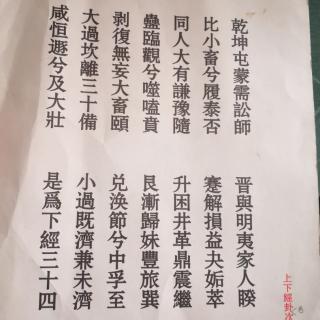 上下經卦次
乾坤屯蒙需訟師
比小畜兮履泰否
同人大有謙豫隨
蠱臨觀兮噬嗑賁
剝復無妄大畜頤
大過坎離三十備
咸恒遯兮及大壯
晉與明夷家人睽
蹇解損益夬姤萃
升困井革鼎震繼
艮漸歸妹豐旅巽
兌渙節兮中孚至
小過既濟兼未濟
是爲下經三十四